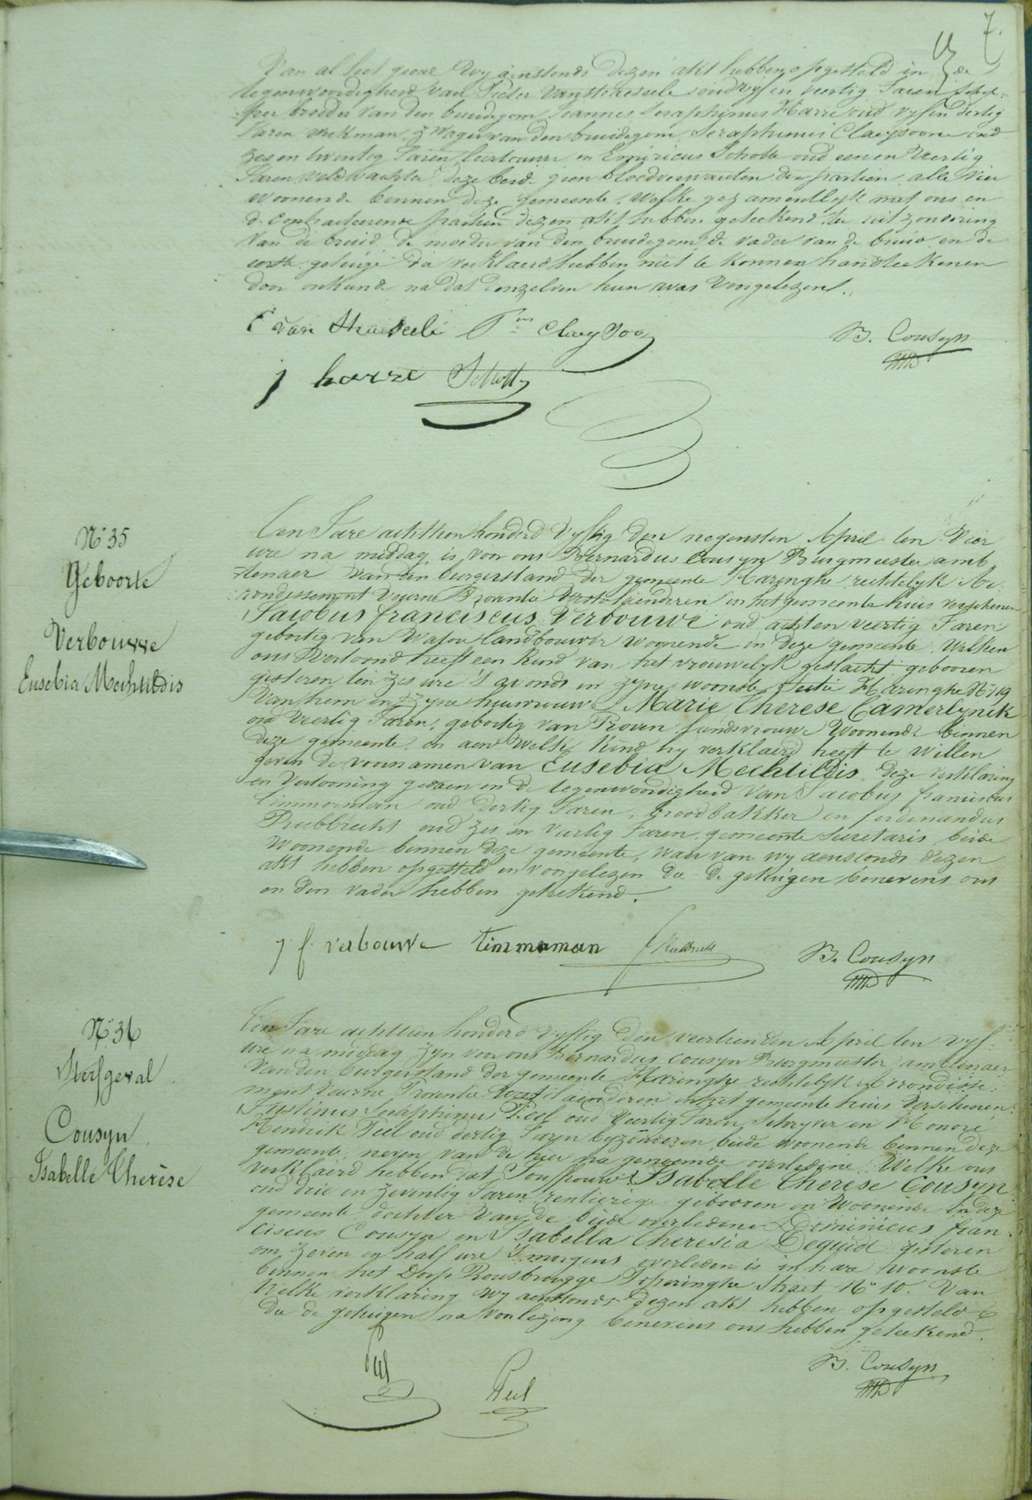 7.
Van al het geene Wy aenstonds dezen akt hebben opgesteld in de
tegenwoordigheid van Pieter Van Straeseele oud vyf en veertig Jaren
broeder van den bruidegom Joannes Seraphinus Harre oud vyf en dertig
Jaren werkman, Zwager van den bruidegom Seraphinus Claeysoone oud
zes en twintig Jaren, en Emiricus Scholte oud een en Veertig
Jaren veldwachter deze beide geen bloedverwanten der partien, alle vier
woonende binnen deze gemeente, Welke gezamentlyk met ons en
de Contracterende partien dezen akt hebben geteekend, ter uitzondering
van de bruid, de moeder van den bruidegom, de vader van de bruid en de
eerste getuige die verklaerd hebben niet te konnen handteekenen
door onkunde na dat denzelven hun was voorgelezen.
Van Straeseele Claeysoo B. Cousyn
j harre Scholte
N° 35
Geboorte
Verbouwe
Eusebia Mechtildis
Ten Jare achttien honderd Vyftig den negensten April ten Vier
ure na middag, is voor ons Bernardus Cousyn Burgmeester amb-
tenaer van den burgerstand der gemeente Haringhe rechtelyk Ar-
rondissement Veurne Provintie Westvlaenderen in het gemeente huis verschenen
Jacobus franciscus Verbouwe oud acht en veertig Jaren
geboortig van Watou landbouwer woonende in deze gemeente. Welken
ons Vertoond heeft een kind van het vrouwelyk geslacht geboren
gisteren ten zes ure 's avonds in zyne woonste Sectie Haringhe Wyg
van hem en zyne huisvrouw Marie Therese Camerlynck
oud Veertig Jaren, geboortig van Proven landvrouwe Woonende binnen
deze gemeente, en aen Welk Kind hy verklaerd heeft te willen
geven de voornamen van Eusebia Mechtildis. Deze verklaring
en Vertooning gedaen in de tegenwoordigheid van Jacobus franciscus
Timmerman oud dertig Jaren, broodbakker en ferdinandus
Rubbrecht oud zes en Veertig Jaren, gemeente Secretaris beide
Woonende binnen deze gemeente, Waer van wy aenstonds dezen
akt hebben opgesteld en voorgelezen die de getuigen benevens ons
en den vader hebben geteekend.
j f verbouwe Timmerman Rubbrecht B. Cousyn
N° 36
Sterfgeval
Cousyn
Isabelle Therèse
Ten Jare achttien honderd vyftig den veertienden April ten vyf
ure na middag zyn voor ons Bernardus Cousyn Burgmeester, ambtenaer
van den burgerstand der gemeente Haringhe rechtelyk Arrondisse-
ment Veurne Provintie Westvlaenderen in het gemeente huis verschenen
Justinus Seraphinus Peel oud Veertig Jaren, Schryver en Honoré
Hendrik Peel oud dertig Jaren byzonderen, beide woonende binnen deze
gemeente, neven van de hier na genoemde overledene. Welke ons
verklaerd hebben dat Jouffrouwe Isabelle Therese Cousyn
oud drie en zeventig Jaren rentierige geboren en Woonende in deze
gemeente, dochter van de beide overledene Dominicus fran-
ciscus Cousyn en Isabella Theresia Dequidt gisteren
om zeven en half ure 's morgens overleden is in hare woonste
binnen het Dorp Rousbrugge Poperinghe Straet N° 10. Van
Welke verklaring wy aenstonds dezen akt hebben opgesteld
die de getuigen na voorlezing benevens ons hebben geteekend.
Peel Peel B. Cousyn